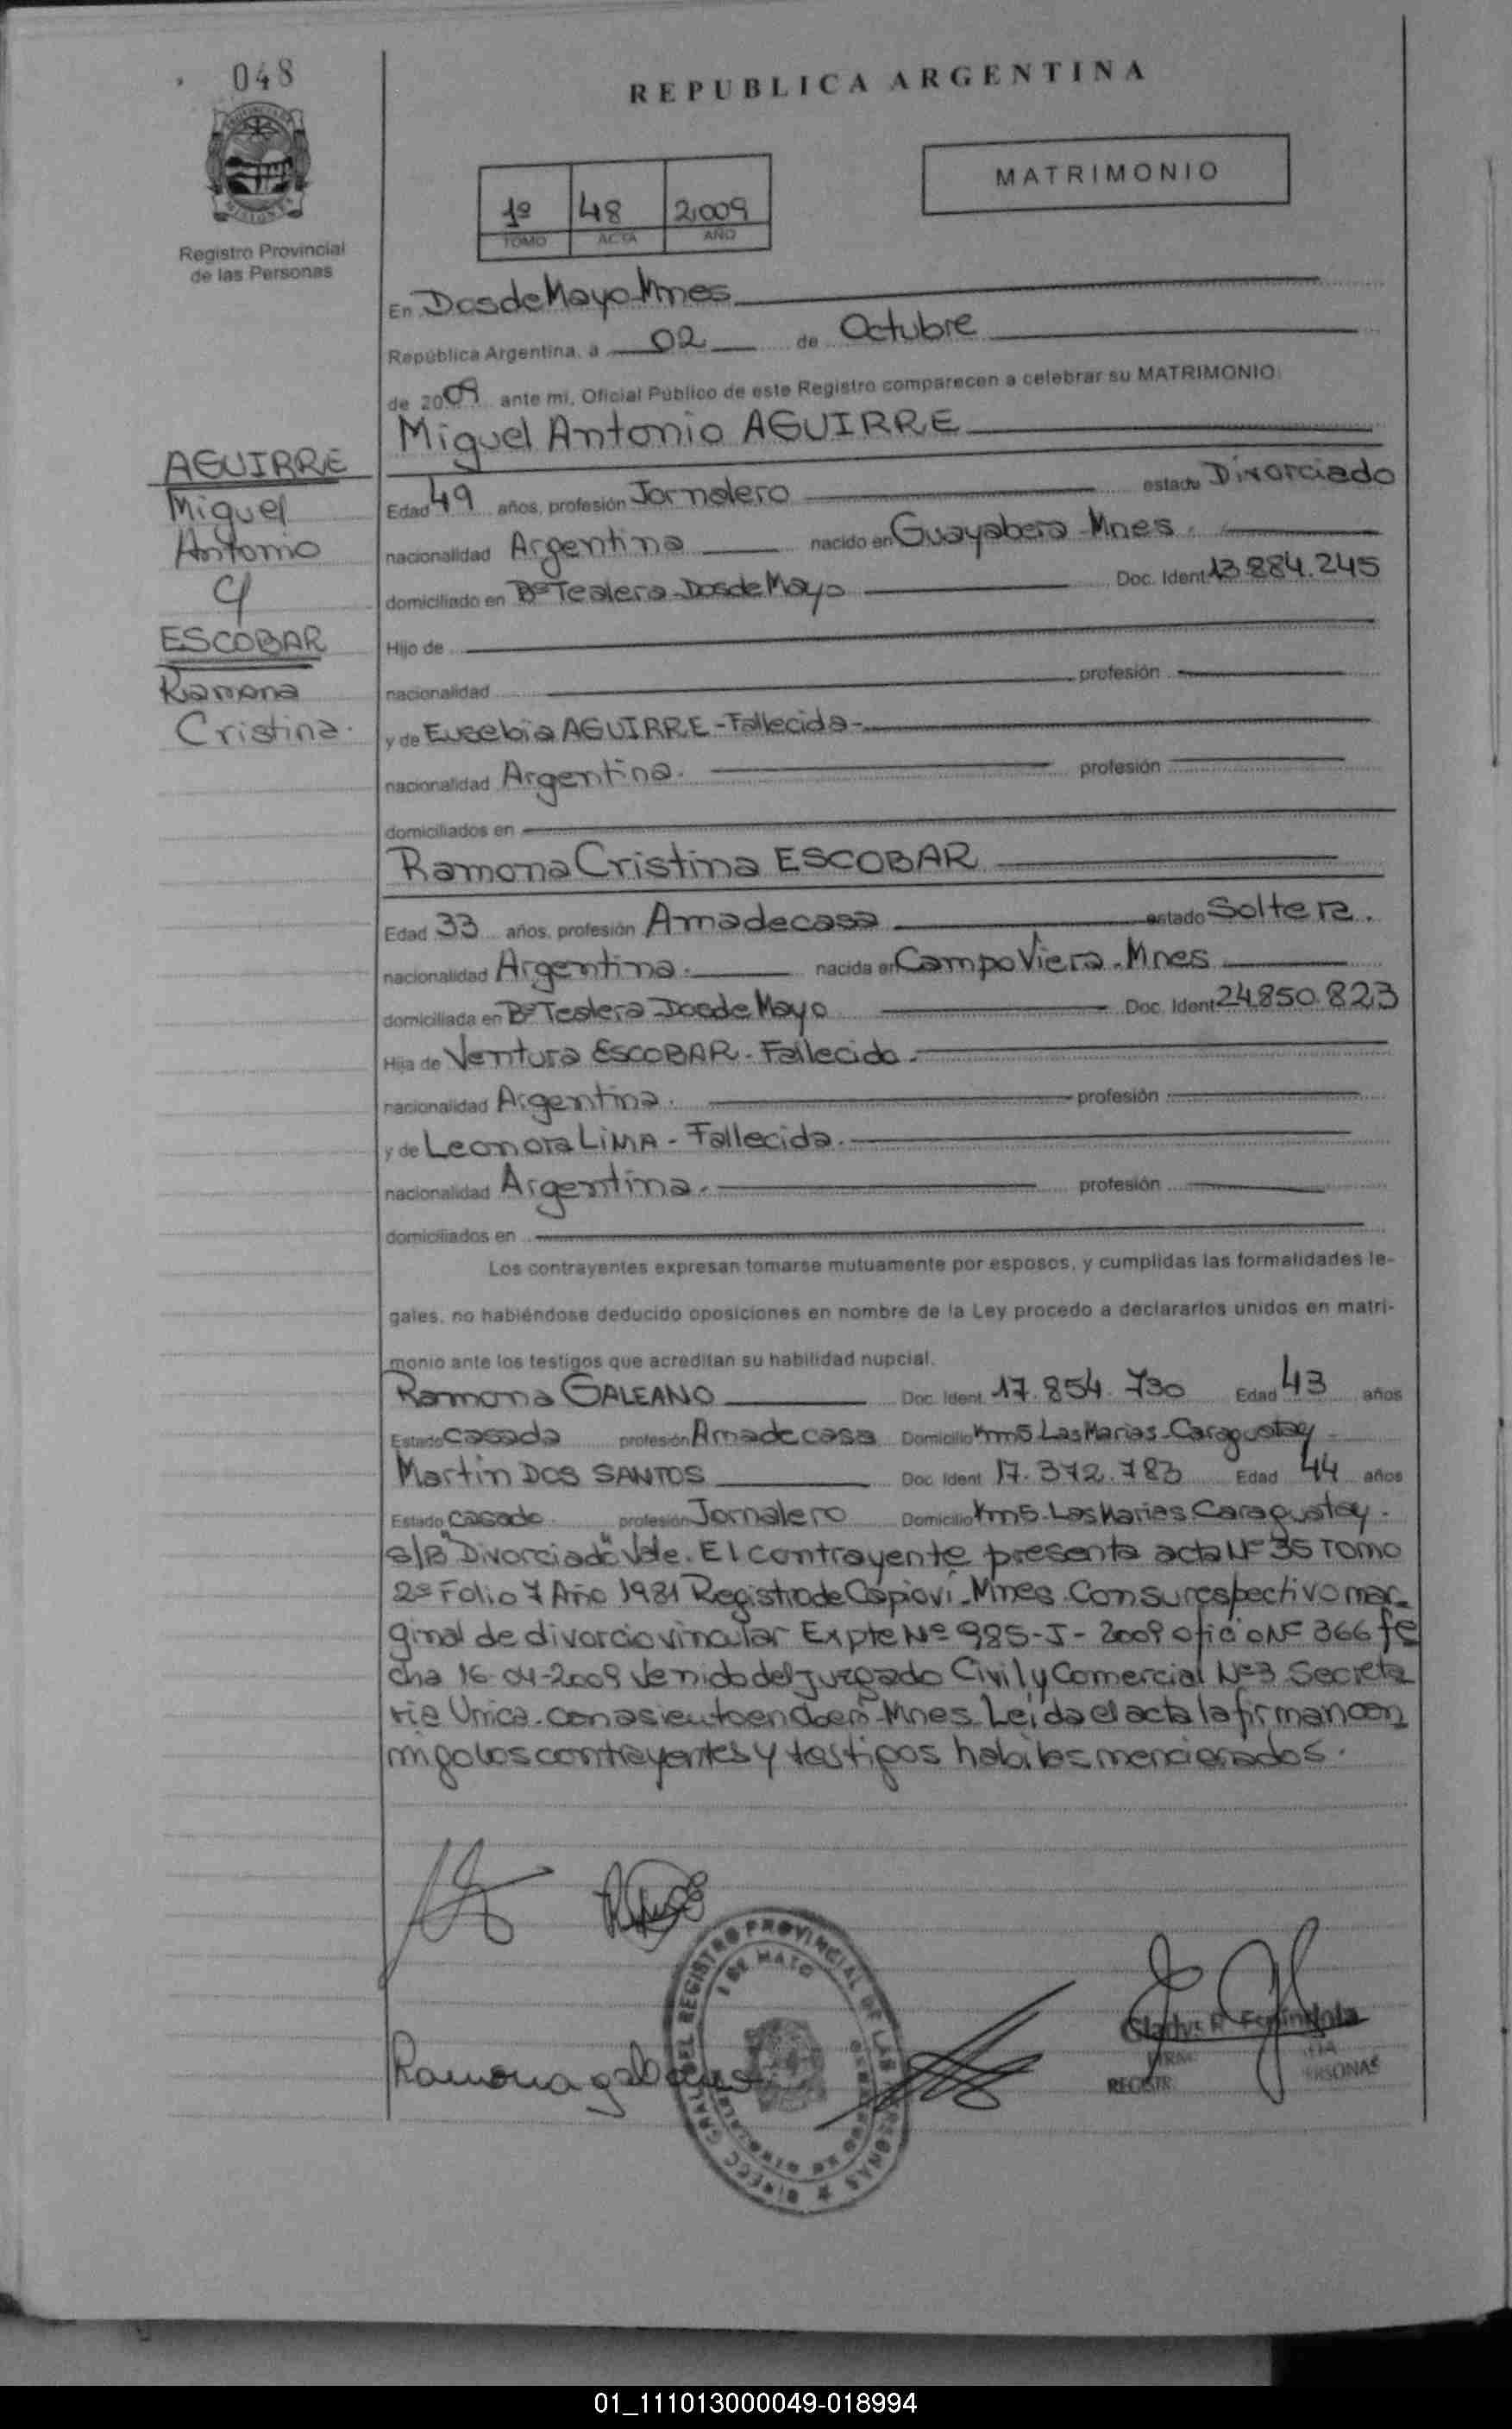 048
REPUBLICA ARGENTINA
MATRIMONIO
1º 48 2.009
TOMO ACTA AÑO
Registro Provincial
de las Personas
En Dos de Mayo Mnes
República Argentina, a 02 de Octubre
de 2009 ante mi, Oficial Público de este Registro comparecen a celebrar su MATRIMONIO
Miguel Antonio AGUIRRE
AGUIRRE
Miguel
Antonio
c/
ESCOBAR
Ramona
Cristina.
Edad 49 años, profesión Jornalero estado Divorciado
nacionalidad Argentina nacido en Guayabera - Mnes.
domiciliado en Bº Tealera - Dos de Mayo Doc. Ident 13.884.245
Hijo de
nacionalidad profesión
y de Eusebia AGUIRRE - Fallecida -
nacionalidad Argentina. profesión
domiciliados en
Ramona Cristina ESCOBAR
Edad 33 años, profesión Ama de casa estado Soltera.
nacionalidad Argentina. nacida en Campo Viera - Mnes
domiciliada en Bº Tealera - Dos de Mayo Doc. Ident 24.850.823
Hija de Ventura ESCOBAR - Fallecido.
nacionalidad Argentina. profesión
y de Leonora LIMA - Fallecida.
nacionalidad Argentina. profesión
domiciliados en
Los contrayentes expresan tomarse mutuamente por esposos, y cumplidas las formalidades le-
gales, no habiéndose deducido oposiciones en nombre de la Ley procedo a declararlos unidos en matri-
monio ante los testigos que acreditan su habilidad nupcial.
Ramona GALEANO Doc. Ident. 17.854.730 Edad 43 años
Estado casada profesión Ama de casa Domicilio Km5 Las Marias - Caraguatay -
Martin DOS SANTOS Doc. Ident 17.372.783 Edad 44 años
Estado casado. profesión Jornalero Domicilio Km5 - Las Marias Caraguatay -
S/B "Divorciado" Vale. El contrayente presenta acta Nº 35 Tomo
2º Folio 7 Año 1981 Registro de Capiovi - Mnes. Con su respectivo mar-
ginal de divorcio vincular Expte Nº 985-J-2009 oficio Nº 366 fe
cha 16-04-2009 venido del juzgado Civil y Comercial Nº3 Secreta
ria Unica. con asiento en - Mnes. Leida el acta la firman con
migo los contrayentes y testigos habiles mencionados.
Ramona galeano
Gladys R. Espindola
01_111013000049-018994